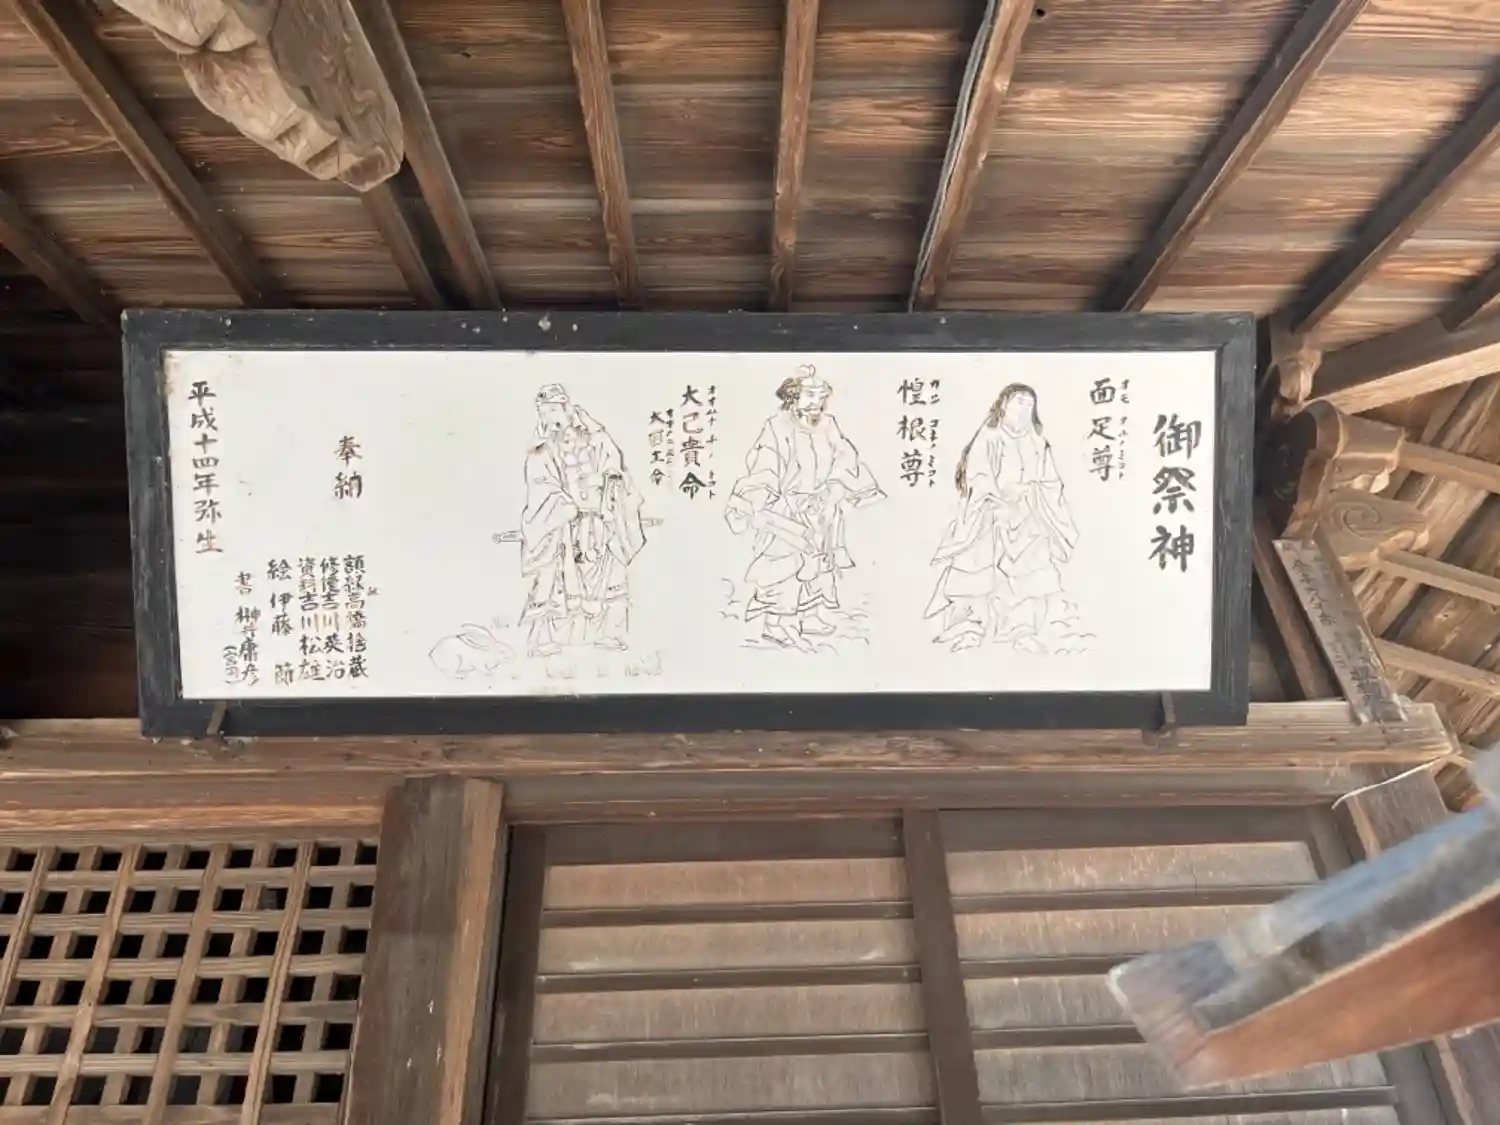 御祭神
面足尊
オモタルノミコト
惶根尊
カシコネノミコト
大己貴命
オオムナチノミコト
大国主命
奉納
額縁高橋捨蔵
修復吉川英治
資料吉川松雄
絵伊藤節
書榊井庸彦
(宮司)
平成十四年弥生